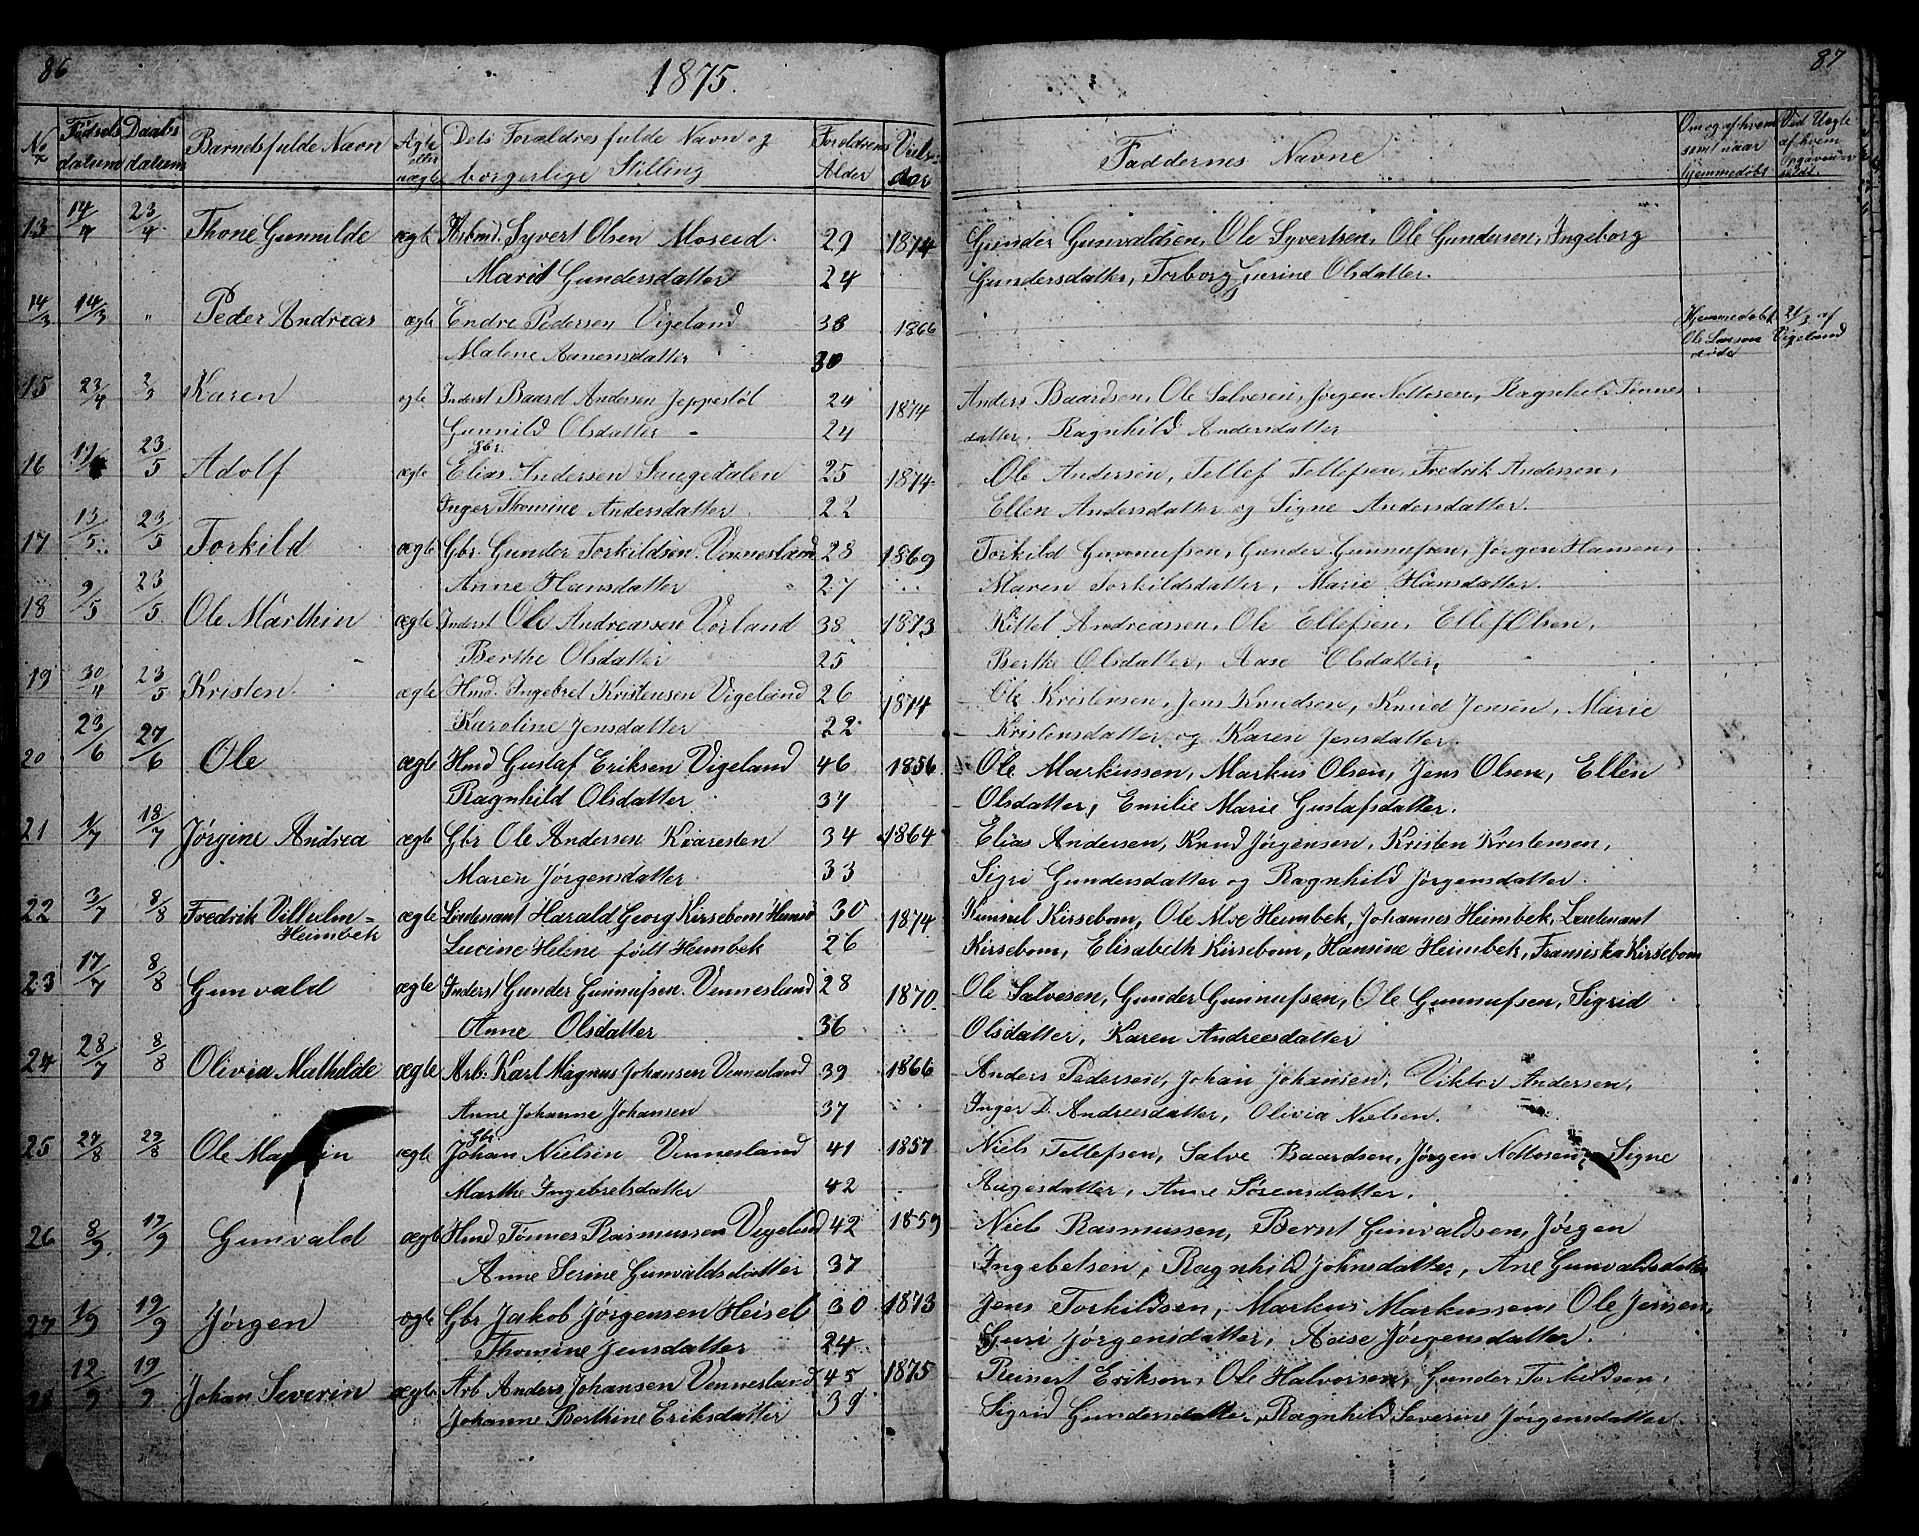 86
1875.
87
No Fødsels datum Daabs datum Barnets fulde Navn Ægte eller uægte Dets Forældres fulde Navn og borgerlige Stilling Forældrenes Alder Viels. Aar Faddernes Navne
13 14/4 23/4 Thone Gunnilde ægte Kirbmd. Syvert Olsen Moseid. 29 1874 Gunder Gunvaldsen, Ole Syvertsen, Ole Gundersen, Ingeborg
Marit Gundersdatter 24 Gundersdatter, Torborg Gurine Olsdatter.
14/3 14/3 " Peder Andreas ægte Endre Pedersen Vigeland 33 1866 Hjemmedøbt 24/3 af
Malene Aanensdatter 30 Ole Larsen Vigeland
døde
15 23/4 2/3 Karen ægte Inderst Baard Andersen Jeppestøl 24 1874 Anders Baardsen, Ole Salvesen, Jørgen Nottosen, Ragnhild Tønnes
Gunnild Olsdatter - 24 datter, Ragnhild Andersdatter
16 19/4 23/5 Adolf ægte Gbr. Elias Andersen Saugedalen 25 1874 Ole Andersen, Tellef Tellefsen, Fredrik Andersen,
Inger Thomine Andersdatter 22 Ellen Andersdatter og Signe Andersdatter.
17 13/5 23/5 Torkild ægte Gbr. Gunder Torkildsen Vennesland 28 1869 Torkild Gunnufsen, Gunder Gunnufsen, Jørgen Hansen,
Anne Hansdatter 27 Maren Torkildsdatter, Marie Hansdatter.
18 9/5 23/5 Ole Marthin ægte Inderst Ole Andreassen Vorland 38 1873 Kittel Andreassen, Ole Ellefsen, Ellef Olsen,
Berthe Olsdatter 25 Berthe Olsdatter, Aase Olsdatter,
19 30/4 23/5 Kristen ægte Hmd. Ingebret Kristensen Vigeland 26 1874 Ole Kristensen, Jens Knudsen, Knud Jensen, Marie
Karoline Jensdatter 22 Kristensdatter og Karen Jensdatter.
20 23/6 27/6 Ole ægte Hmd Gustaf Eriksen Vigeland 46 1856 Ole Markussen, Markus Olsen, Jens Olsen, Ellen
Ragnhild Olsdatter 37 Olsdatter, Emilie Marie Gustafsdatter.
21 1/7 18/7 Jørgine Andrea ægte Gbr Ole Andersen Kvaresten 34 1864 Elias Andersen, Knud Jørgensen, Kristen Kristensen,
Maren Jørgensdatter 33 Sigri Gundersdatter og Ragnhild Jørgensdatter.
22 3/7 8/8 Fredrik Vilhelm = ægte Lieutenant Harald Georg Kirsebom 30 1874 Kirsebom, Ole Moe Heimbek, Johannes Heimbek, Lieutenant
Heimbek Lucine Helene født Heimbek 26 Kirsebom, Elisabeth Kirsebom, Hansine Heimbek, Fransiska Kirsebom
23 17/7 8/8 Gunvald ægte Inderst Gunder Gunnufsen. Vennesland 28 1870 Ole Salvesen, Gunder Gunnufsen, Ole Gunnufsen, Sigrid
Anne Olsdatter 36 Olsdatter, Karen Andreesdatter
24 28/7 8/8 Olivia Mathilde ægte Arb. Karl Magnus Johansen Vennesland 39 1866 Anders Pedersen, Johan Johansen, Viktor Andersen,
Anne Johanne Johansen 37 Inger D. Andreesdatter, Olivia Nielsen.
25 27/8 29/8 Ole ægte Gbr Johan Nielsen Vennesland 41 1857 Niels Tellefsen, Salve Baardsen, Jørgen Nottosen, Signe
Marthe Ingebretsdatter 42 Augesdatter, Anne Sørensdatter.
26 8/9 19/9 Gunvald ægte Hmd Tønnes Rasmussen Vigeland 42 1859 Niels Rasmussen, Bernt Gunvaldsen, Jørgen
Anne Serine Gunvaldsdatter 37 Ingebetsen, Ragnhild Johnsdatter, Ane Gunvaldsdatter
27 1/9 19/9 Jørgen ægte Gbr Jakob Jørgensen Heisel 30 1873 Jens Torkildsen, Markus Markussen, Ole Jensen,
Thomine Jensdatter 24 Guri Jørgensdatter, Aase Jørgensdatter.
28 12/9 19/9 Johan Severin ægte Arb Anders Johansen Vennesland 45 1875 Reinert Eriksen, Ole Halvorsen, Gunder Torkildsen,
Johanne Berthine Eriksdatter 39 Sigrid Gundersdatter, Ragnhild Severine Jørgensdatter